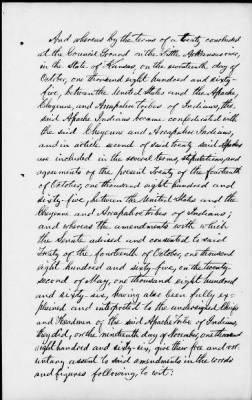 And whereas by the terms of a treaty concluded
at the Council Ground on the Little Arkansas river,
in the State of Kansas, on the seventeenth day of
October, one thousand eight hundred and sixty-
five, between the United States and the Apache,
Cheyenne, and Arrapahoe tribes of Indians, the
said Apache Indians became confederated with
the said Cheyenne and Arrapahoe Indians,
and in article second of said treaty said Apaches
are included in the several terms, stipulations, and
agreements of the present Treaty of the fourteenth
of October, one thousand eight hundred and
sixty-five, between the United States and the
Cheyenne and Arrapahoe tribes of Indians;
and whereas the amendments with which
the Senate advised and consented to said
Treaty of the fourteenth of October, one thousand
eight hundred and sixty-five, on the twenty-
second of May, one thousand eight hundred
and sixty-six, having also been fully ex-
plained and interpreted to the undersigned Chiefs
and Headmen of the said Apache Tribe of Indians,
they did, on the nineteenth day of November, one thousand
eight hundred and sixty-six, give their free and vol-
untary assent to said amendments in the words
and figures following, to wit: